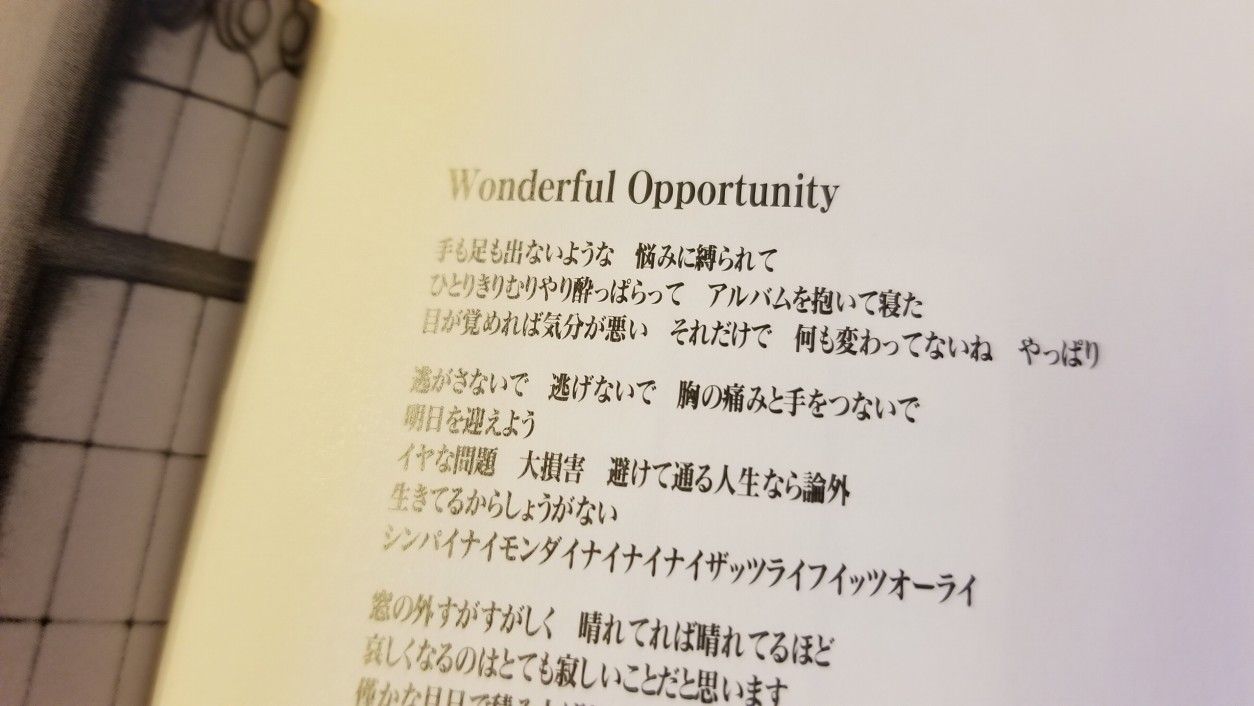 Wonderful Opportunity
手も足も出ないような　悩みに縛られて
ひとりきりむりやり酔っぱらって　アルバムを抱いて寝た
目が覚めれば気分が悪い　それだけで　何も変わってないね　やっぱり
逃がさないで　逃げないで　胸の痛みと手をつないで
明日を迎えよう
イヤな問題　大損害　避けて通る人生なら論外
生きてるからしょうがない
シンパイナイモンダイナイナイナイザッツライフイッツオーライ
窓の外すがすがしく　晴れてれば晴れてるほど
哀しくなるのはとても寂しいことだと思います
僅かな日日で積み